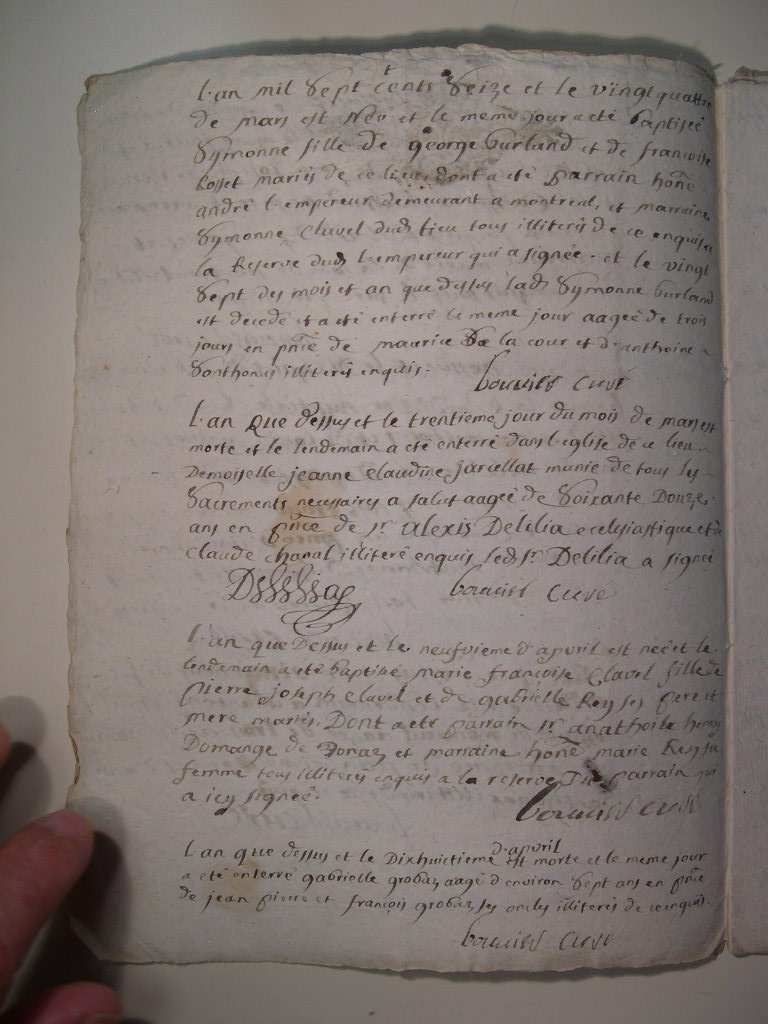 L'an mil sept cents seize et le vingt quattre
de mars est née et le meme jour a eté baptisée
Symonne fille de george burland et de francoise
Rosset mariés de ce lieu dont a eté parrain hoñe
andré l'empereur demeurant a montreal et marraine
Symonne clavel dud lieu tous illiterés de ce enquis a
la Reserve dud l'empereur qui a signée. et le vingt
Sept des mois et an que dessus lad Symonne burland
est decedé et a eté enterré le meme jour aagée de trois
jours en pñce de maurice De la cour et d'anthoine
Sonthonas illiterés enquis.
bouvier curé
L'an Que dessus et le trentieme jour du mois de mars est
morte et le lendemain a eté enterré dans l'eglise de ce lieu
Demoiselle jeanne claudine jarcellat munie de tous les
Sacrements necessaires a salut aagée de Soixante Douze
ans en pñce de sr alexis Delilia ecclesiastique et de
claude chanal illiteré enquis led sr Delilia a signé
Delilia
bouvier curé
L'an que Dessus et le neufvieme d'apvril est née et le
lendemain a eté baptisé marie françoise clavel fille de
pierre joseph clavel et de gabrielle Rey ses pere et
mere mariés. Dont a eté parrain sr anathoile henry
Domange de et marraine hoñe marie Rey sa
femme tous illiterés enquis a la reserve Du parrain qui
a icy signée.
bouvier curé
L'an que dessus et le Dixhuictieme d'apvril est morte et le meme jour
a eté enterré gabrielle grobas aagé d'environ Sept ans en pñce
de jean pierre et françois grobas ses oncles illiterés de ce enquis.
bouvier curé